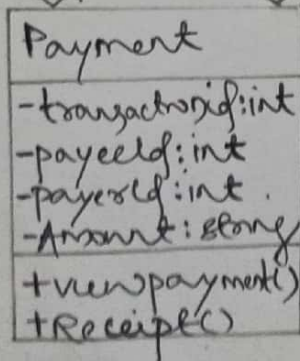 Payment
-transactionid:int
-payeeId:int
-payerId:int.
-Amount:string
+viewpayment()
+Receipt()